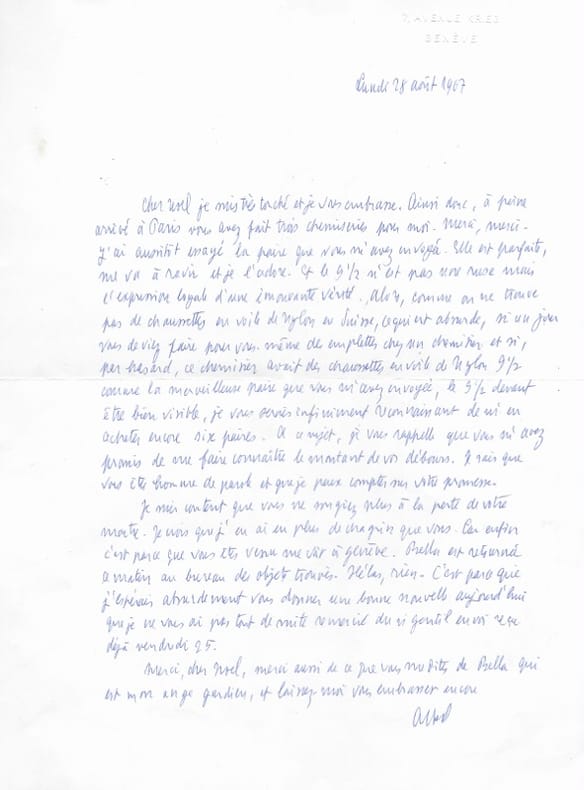 7, AVENUE KRIEG
GENÈVE
Lundi 28 août 1967
Cher Noël je suis très touché et je vous embrasse. Ainsi donc, à peine
arrivé à Paris vous avez fait trois chemiseries pour moi. Merci, merci.
J'ai aussitôt essayé la paire que vous m'avez envoyée. Elle est parfaite,
me va à ravir et je l'adore. Et le 9 1/2 n'est pas une ruse mais
l'expression loyale d'une émouvante vérité. Alors, comme on ne trouve
pas de chaussettes en voile de Nylon en Suisse, ce qui est absurde, si un jour
vous deviez faire pour vous-même des emplettes chez un chemisier et si,
par hasard, ce chemisier avait des chaussettes en voile de Nylon 9 1/2
comme la merveilleuse paire que vous m'avez envoyée, le 9 1/2 devant
être bien visible, je vous serais infiniment reconnaissant de m'en
acheter encore six paires. A ce sujet, je vous rappelle que vous m'avez
promis de me faire connaître le montant de vos débours. Je sais que
vous êtes homme de parole et que je peux compter sur votre promesse.
Je suis content que vous ne songiez plus à la perte de votre
montre. Je crois que j'en ai eu plus de chagrin que vous. Car enfin
c'est parce que vous êtes venu me voir à Genève. Bella est retournée
ce matin au bureau des objets trouvés. Hélas, rien. C'est parce que
j'espérais absurdement vous donner une bonne nouvelle aujourd'hui
que je ne vous ai pas tout de suite remercié du si gentil envoi reçu
déjà vendredi 25.
Merci, cher Noël, merci aussi de ce que vous me dites de Bella qui
est mon ange gardien, et laissez-moi vous embrasser encore
Albert